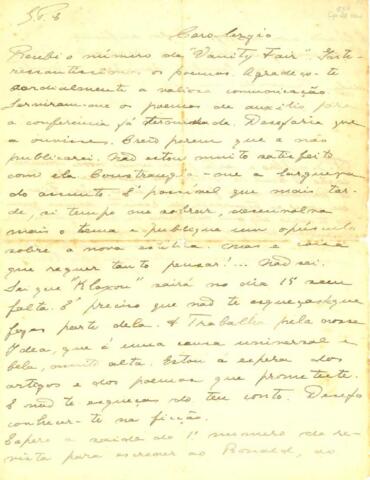 S.P. 8
Caro Sergio
Recebi o número de "Vanity Fair". Inte-
ressantissimos os poemas. Agradeço-te
cordialmente a valiosa comunicação.
Serviram-me os poemas de auxilio para
a conferencia já terminada. Desejaria que
a ouvisses. Creio porem que a não
publicarei. Não estou muito satisfeito
com ela. Constrangeu-me a largueza
do assunto. E' possivel que mais tar-
de, si tempo me sobrar, desenvolva
mais o tema e publique um opusculo
sobre a nova estética. Mas é coisa
que requer tanto pensar!... Não sei.
Sei que "Klaxon" sairá no dia 15 sem
falta. E' preciso que não te esqueças que
fazes parte dela. Trabalha pela nossa
Idea, que é uma causa universal e
bela, muito alta. Estou á espera dos
artigos e dos poemas que prometeste.
E não te esqueças do teu conto. Desejo
conhecer-te na ficção.
Espero a saida do 1º numero da re-
vista para escrever ao Ronald, ao